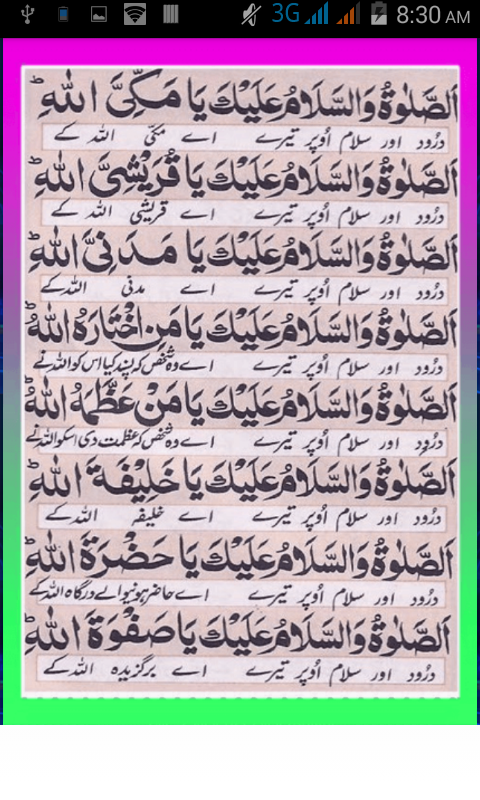 3G 8:30 AM
اَلصَّلٰوةُ وَالسَّلَامُ عَلَيْكَ يَا مَكِّىَّ اللهِ ؕ
درُود اور سلام اُوپر تیرے اے مکّی اللہ کے
اَلصَّلٰوةُ وَالسَّلَامُ عَلَيْكَ يَا قُرَيْشِىَّ اللهِ ؕ
درُود اور سلام اُوپر تیرے اے قریشی اللہ کے
اَلصَّلٰوةُ وَالسَّلَامُ عَلَيْكَ يَا مَدَنِىَّ اللهِ ؕ
درُود اور سلام اُوپر تیرے اے مدنی اللہ کے
اَلصَّلٰوةُ وَالسَّلَامُ عَلَيْكَ يَا مَنِ اخْتَارَهُ اللهُ ؕ
درُود اور سلام اُوپر تیرے اے وہ شخص کہ پسند کیا اس کو اللہ نے
اَلصَّلٰوةُ وَالسَّلَامُ عَلَيْكَ يَا مَنْ عَظَّمَهُ اللهُ ؕ
درُود اور سلام اُوپر تیرے اے وہ شخص کہ عظمت دی اسکو اللہ نے
اَلصَّلٰوةُ وَالسَّلَامُ عَلَيْكَ يَا خَلِيْفَةَ اللهِ ؕ
درُود اور سلام اُوپر تیرے اے خلیفہ اللہ کے
اَلصَّلٰوةُ وَالسَّلَامُ عَلَيْكَ يَا حَضْرَةَ اللهِ ؕ
درُود اور سلام اُوپر تیرے اے حاضر ہونیوالے درگاہ اللہ کے
اَلصَّلٰوةُ وَالسَّلَامُ عَلَيْكَ يَا صَفْوَةَ اللهِ ؕ
درُود اور سلام اُوپر تیرے اے برگزیدہ اللہ کے